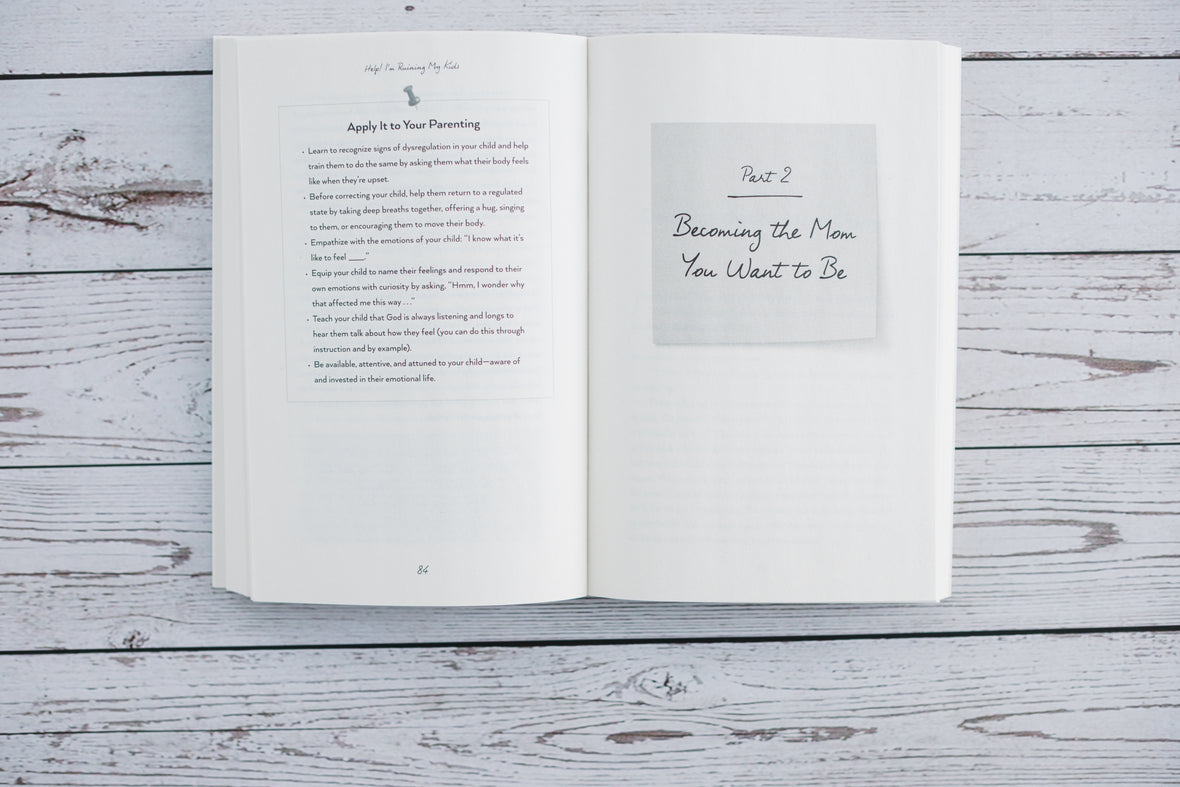 Help! I'm Ruining My Kids
Apply It to Your Parenting
• Learn to recognize signs of dysregulation in your child and help
train them to do the same by asking them what their body feels
like when they're upset.
• Before correcting your child, help them return to a regulated
state by taking deep breaths together, offering a hug, singing
to them, or encouraging them to move their body.
• Empathize with the emotions of your child: "I know what it's
like to feel ____."
• Equip your child to name their feelings and respond to their
own emotions with curiosity by asking, "Hmm, I wonder why
that affected me this way . . ."
• Teach your child that God is always listening and longs to
hear them talk about how they feel (you can do this through
instruction and by example).
• Be available, attentive, and attuned to your child—aware of
and invested in their emotional life.
84
Part 2
Becoming the Mom
You Want to Be